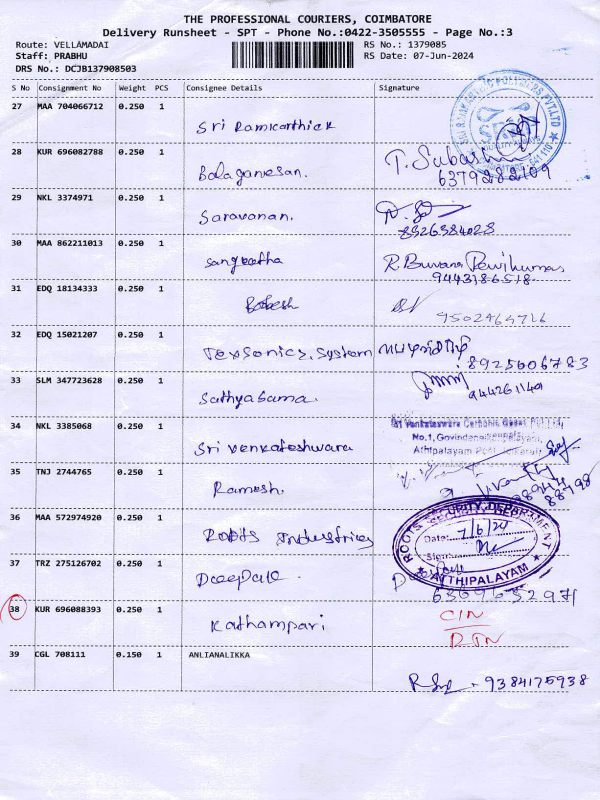 THE PROFESSIONAL COURIERS, COIMBATORE
Delivery Runsheet - SPT - Phone No.:0422-3505555 - Page No.:3
Route: VELLAMADAI
RS No.: 1379085
Staff: PRABHU
RS Date: 07-Jun-2024
DRS No.: DCJB137908503
S No Consignment No Weight PCS Consignee Details Signature
27 MAA 704066712 0.250 1
Sri Ramkarthick
28 KUR 696082788 0.250 1
Balaganesan.
T. Subash
6379282109
29 NKL 3374971 0.250 1
Saravanan.
8926384028
30 MAA 862211013 0.250 1
Sangeetha
R. Buvana
9443186518
31 EDQ 18134333 0.250 1
9502463716
32 EDQ 15021207 0.250 1
Texsonics. System
8925606783
33 SLM 347723628 0.250 1
Sathyabama.
944261140
34 NKL 3385068 0.250 1
Sri venkateshwara
Sri Venkateswara Carbonic Gases
No.1, Govindanaickenpalayam,
Athipalayam Post,
35 TNJ 2744765 0.250 1
Ramesh.
36 MAA 572974920 0.250 1
Roots Industries
ROOTS SECURITY DEPARMENT
Date: 7/6/24
Sign
ATHIPALAYAM
37 TRZ 275126702 0.250 1
Deepak.
38 KUR 696088393 0.250 1
Kathampari
CIN
RTN
39 CGL 708111 0.150 1 ANLIANALIKKA
9384175938